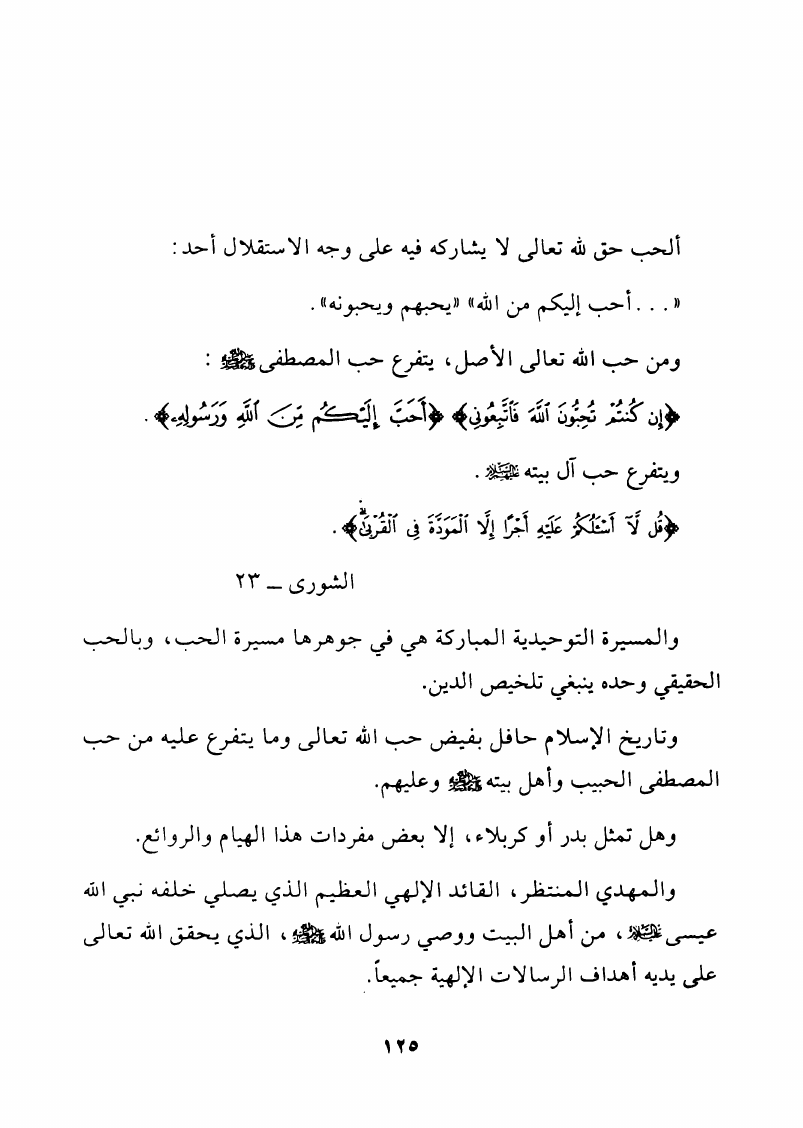 ألحب حق لله تعالى لا يشاركه فيه على وجه الاستقلال أحد:
«... أحب إليكم من الله» «يحبهم ويحبونه».
ومن حب الله تعالى الأصل، يتفرع حب المصطفى ﷺ :
﴿إِن كُنتُمْ تُحِبُّونَ ٱللَّهَ فَٱتَّبِعُونِي﴾ ﴿أَحَبَّ إِلَيْكُم مِّنَ ٱللَّهِ وَرَسُولِهِۦ﴾.
ويتفرع حب آل بيته عليهم السلام.
﴿قُل لَّآ أَسْـَٔلُكُمْ عَلَيْهِ أَجْرًا إِلَّا ٱلْمَوَدَّةَ فِى ٱلْقُرْبَىٰۗ﴾.
الشورى ــ ٢٣
والمسيرة التوحيدية المباركة هي في جوهرها مسيرة الحب، وبالحب
الحقيقي وحده ينبغي تلخيص الدين.
وتاريخ الإسلام حافل بفيض حب الله تعالى وما يتفرع عليه من حب
المصطفى الحبيب وأهل بيته ﷺ وعليهم.
وهل تمثل بدر أو كربلاء، إلا بعض مفردات هذا الهيام والروائع.
والمهدي المنتظر، القائد الإلهي العظيم الذي يصلي خلفه نبي الله
عيسى عليه السلام، من أهل البيت ووصي رسول الله ﷺ، الذي يحقق الله تعالى
على يديه أهداف الرسالات الإلهية جميعاً.
١٢٥